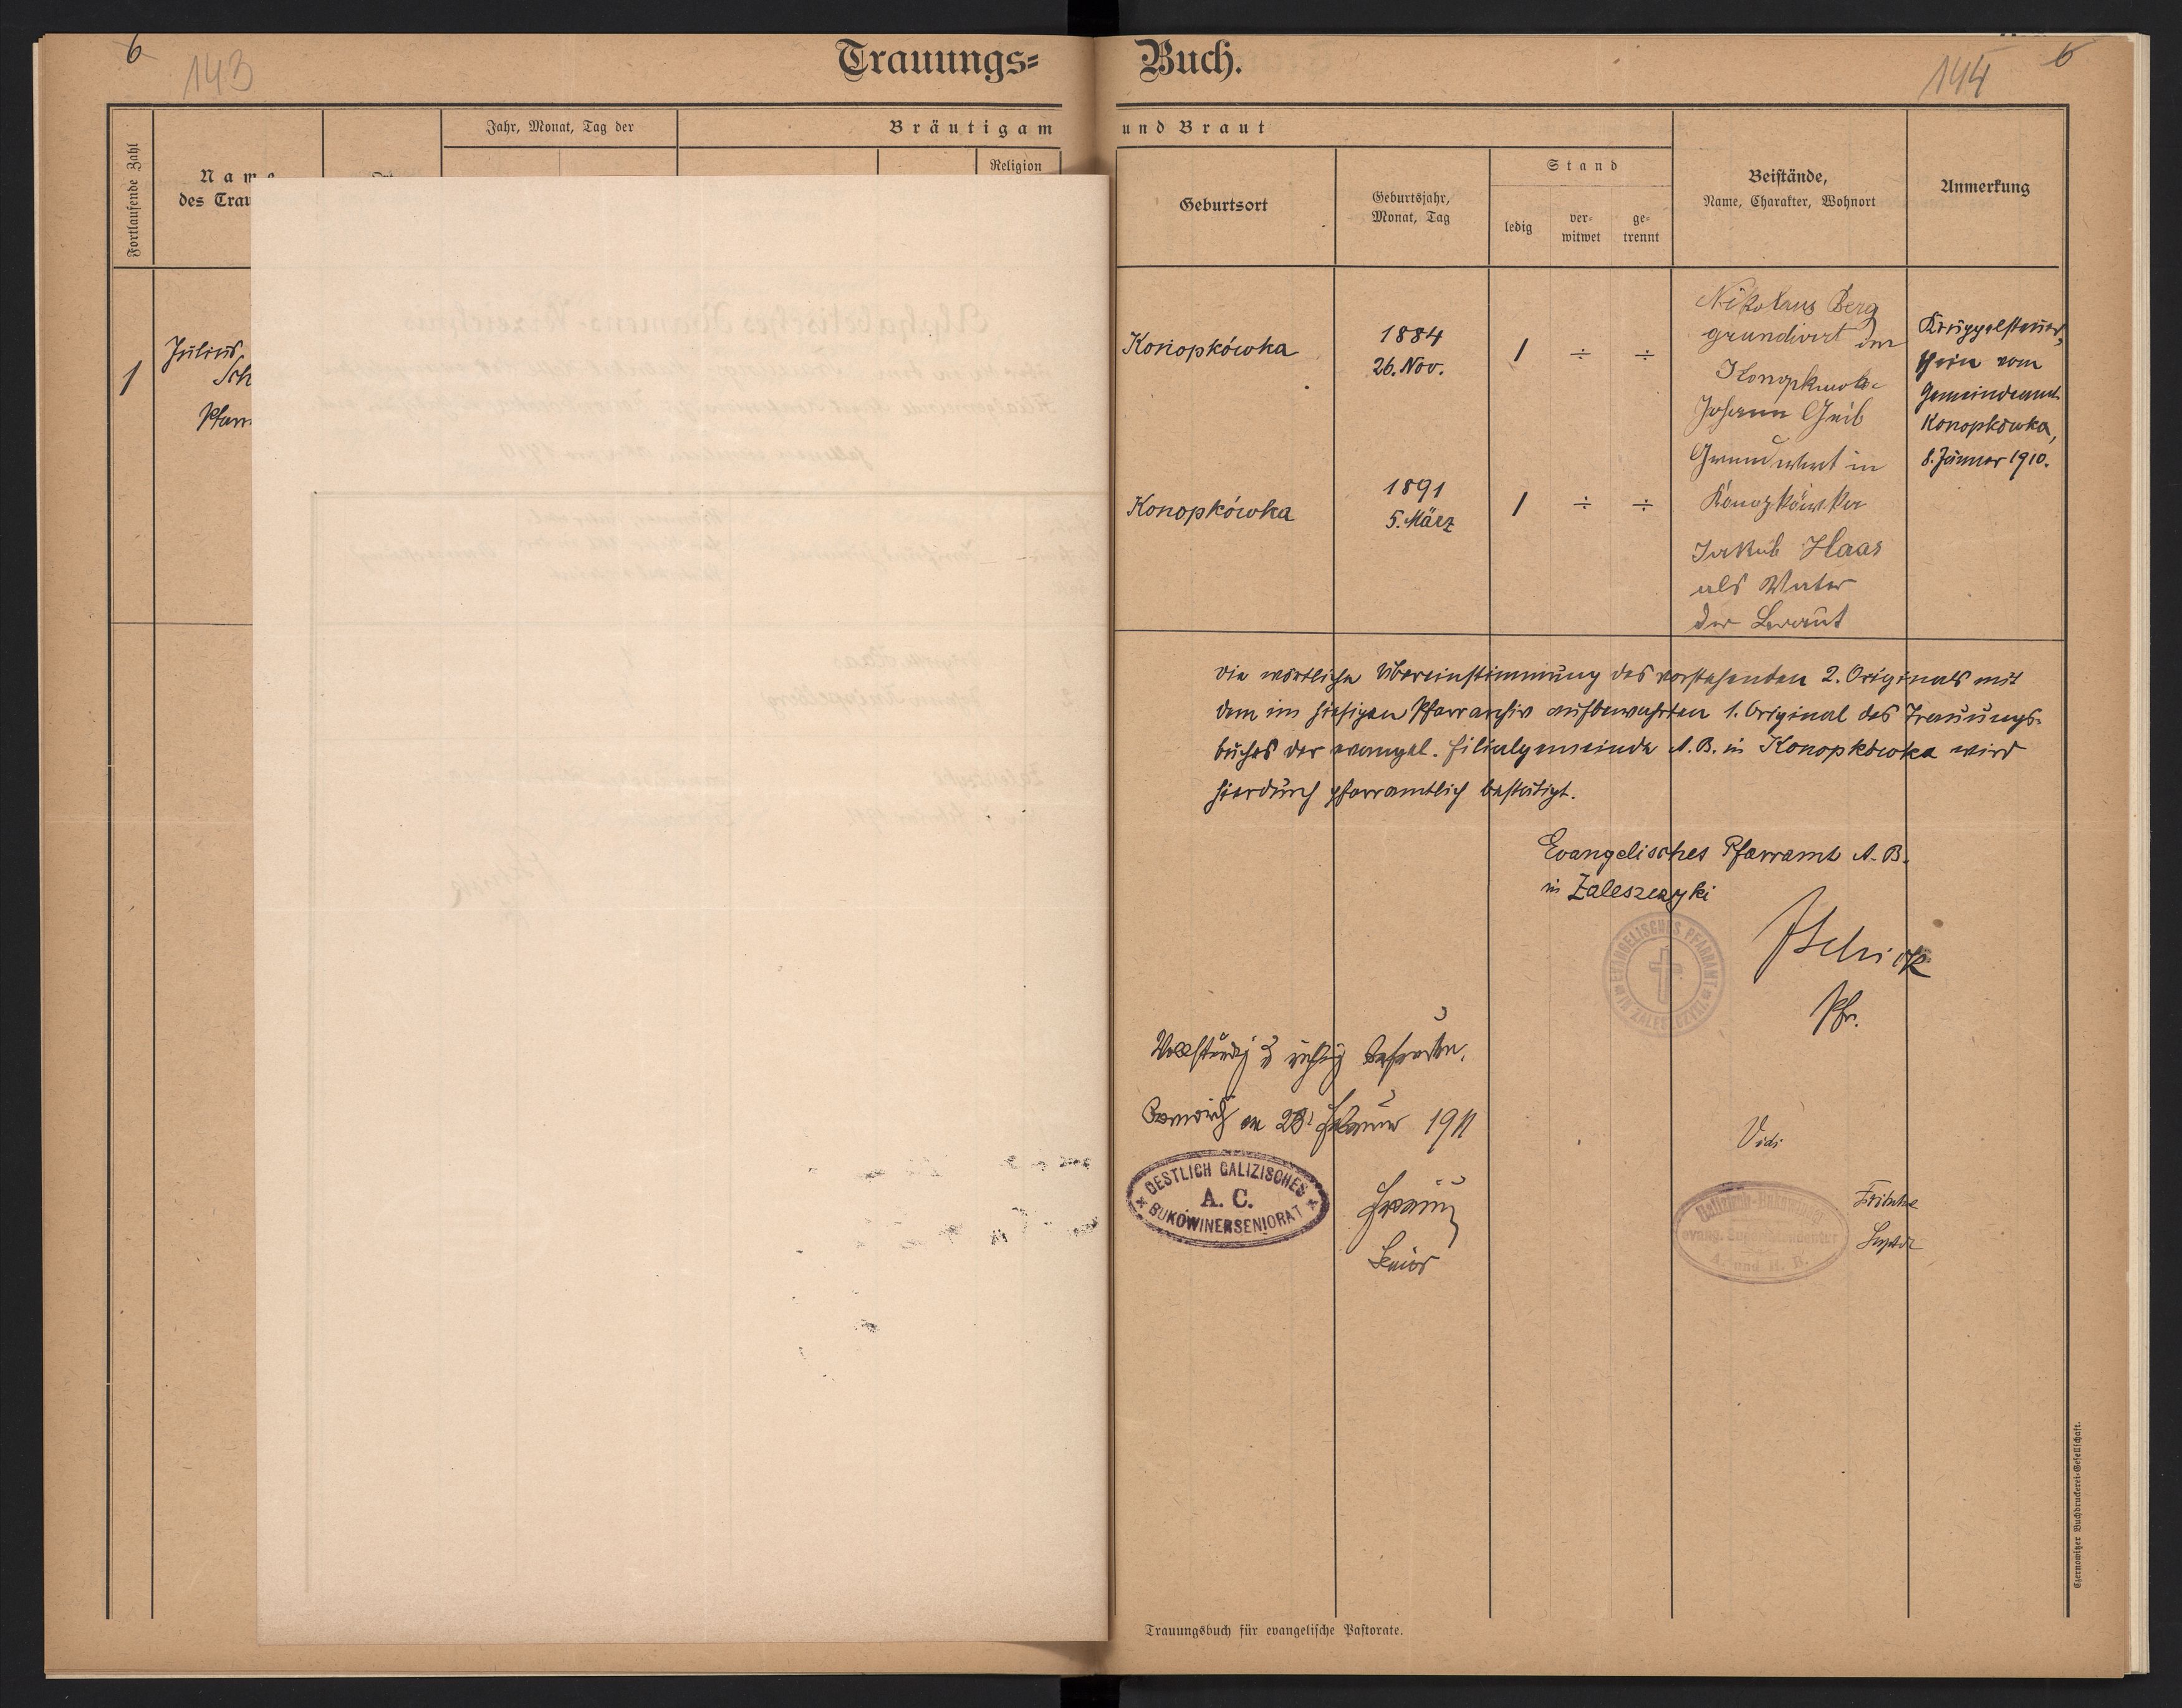 6
143
Trauungs=
Fortlaufende Zahl
Name
des Trau
Jahr, Monat, Tag der
Bräutigam
Religion
1
Julius
Sch
Pfarr
Buch.
144
6
und Braut
Geburtsort
Geburtsjahr,
Monat, Tag
Stand
ledig
ver-
witwet
ge-
trennt
Beistände,
Name, Charakter, Wohnort
Anmerkung
Konopkówka
1884
26. Nov.
1 ÷ ÷
Konopkówka
1891
5. März
1 ÷ ÷
Nikolaus Berg
grundwirt in
Johann Geib
Grundwirt in
Konopkówka
Jakob Haas
als Vater
der Braut
vom
Gemeindeamt
Konopkówka,
8. Jänner 1910.
Die wörtliche Übereinstimmung des vorstehenden 2. Originals mit
dem im hiesigen Pfarrarchiv aufbewahrten 1. Original des Trauungs-
buches der evangel. Filialgemeinde A. B. in Konopkówka wird
hierdurch pfarramtlich bestätigt.
Evangelisches Pfarramt A. B.
in Zaleszczyki
EVANGELISCHES PFARRAMT ZALESZCZYKI
Schick
Pfr.
Vollständig & richtig befunden.
1911
OESTLICH GALIZISCHES
A. C.
BUKOWINERSENIORAT
Senior
Vidi
Galizisch-Bukowiner
evang. Superintendentur
A. und H. B.
Fritsche
Suptdt
Czernowitzer Buchdruckerei-Gesellschaft.
Trauungsbuch für evangelische Pastorate.